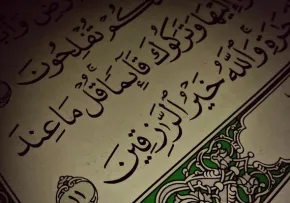 كُمْ تُفْلِحُونَ
إِلَيْهَا وَتَرَكُوكَ قَآئِمًا قُلْ مَا عِندَ
وَٱللَّهُ خَيْرُ ٱلرَّٰزِقِينَ ١١